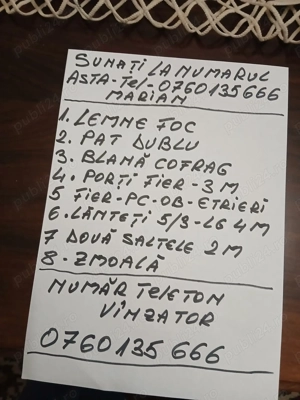 SUNAȚI LA NUMARUL
ASTA-Tel-0760135666
MARIAN
1. LEMNE FOC
2. PAT DUBLU
3. BLANĂ COFRAG
4. PORȚI FIER-3M
5 FIER-PC-OB-ETRIERI
6. LĂNTEȚI 5/3-LG 4M
7 DOUĂ SALTELE 2M
8-ZMOALĂ
NUMĂR TELETON
VÎNZATOR
0760135 666